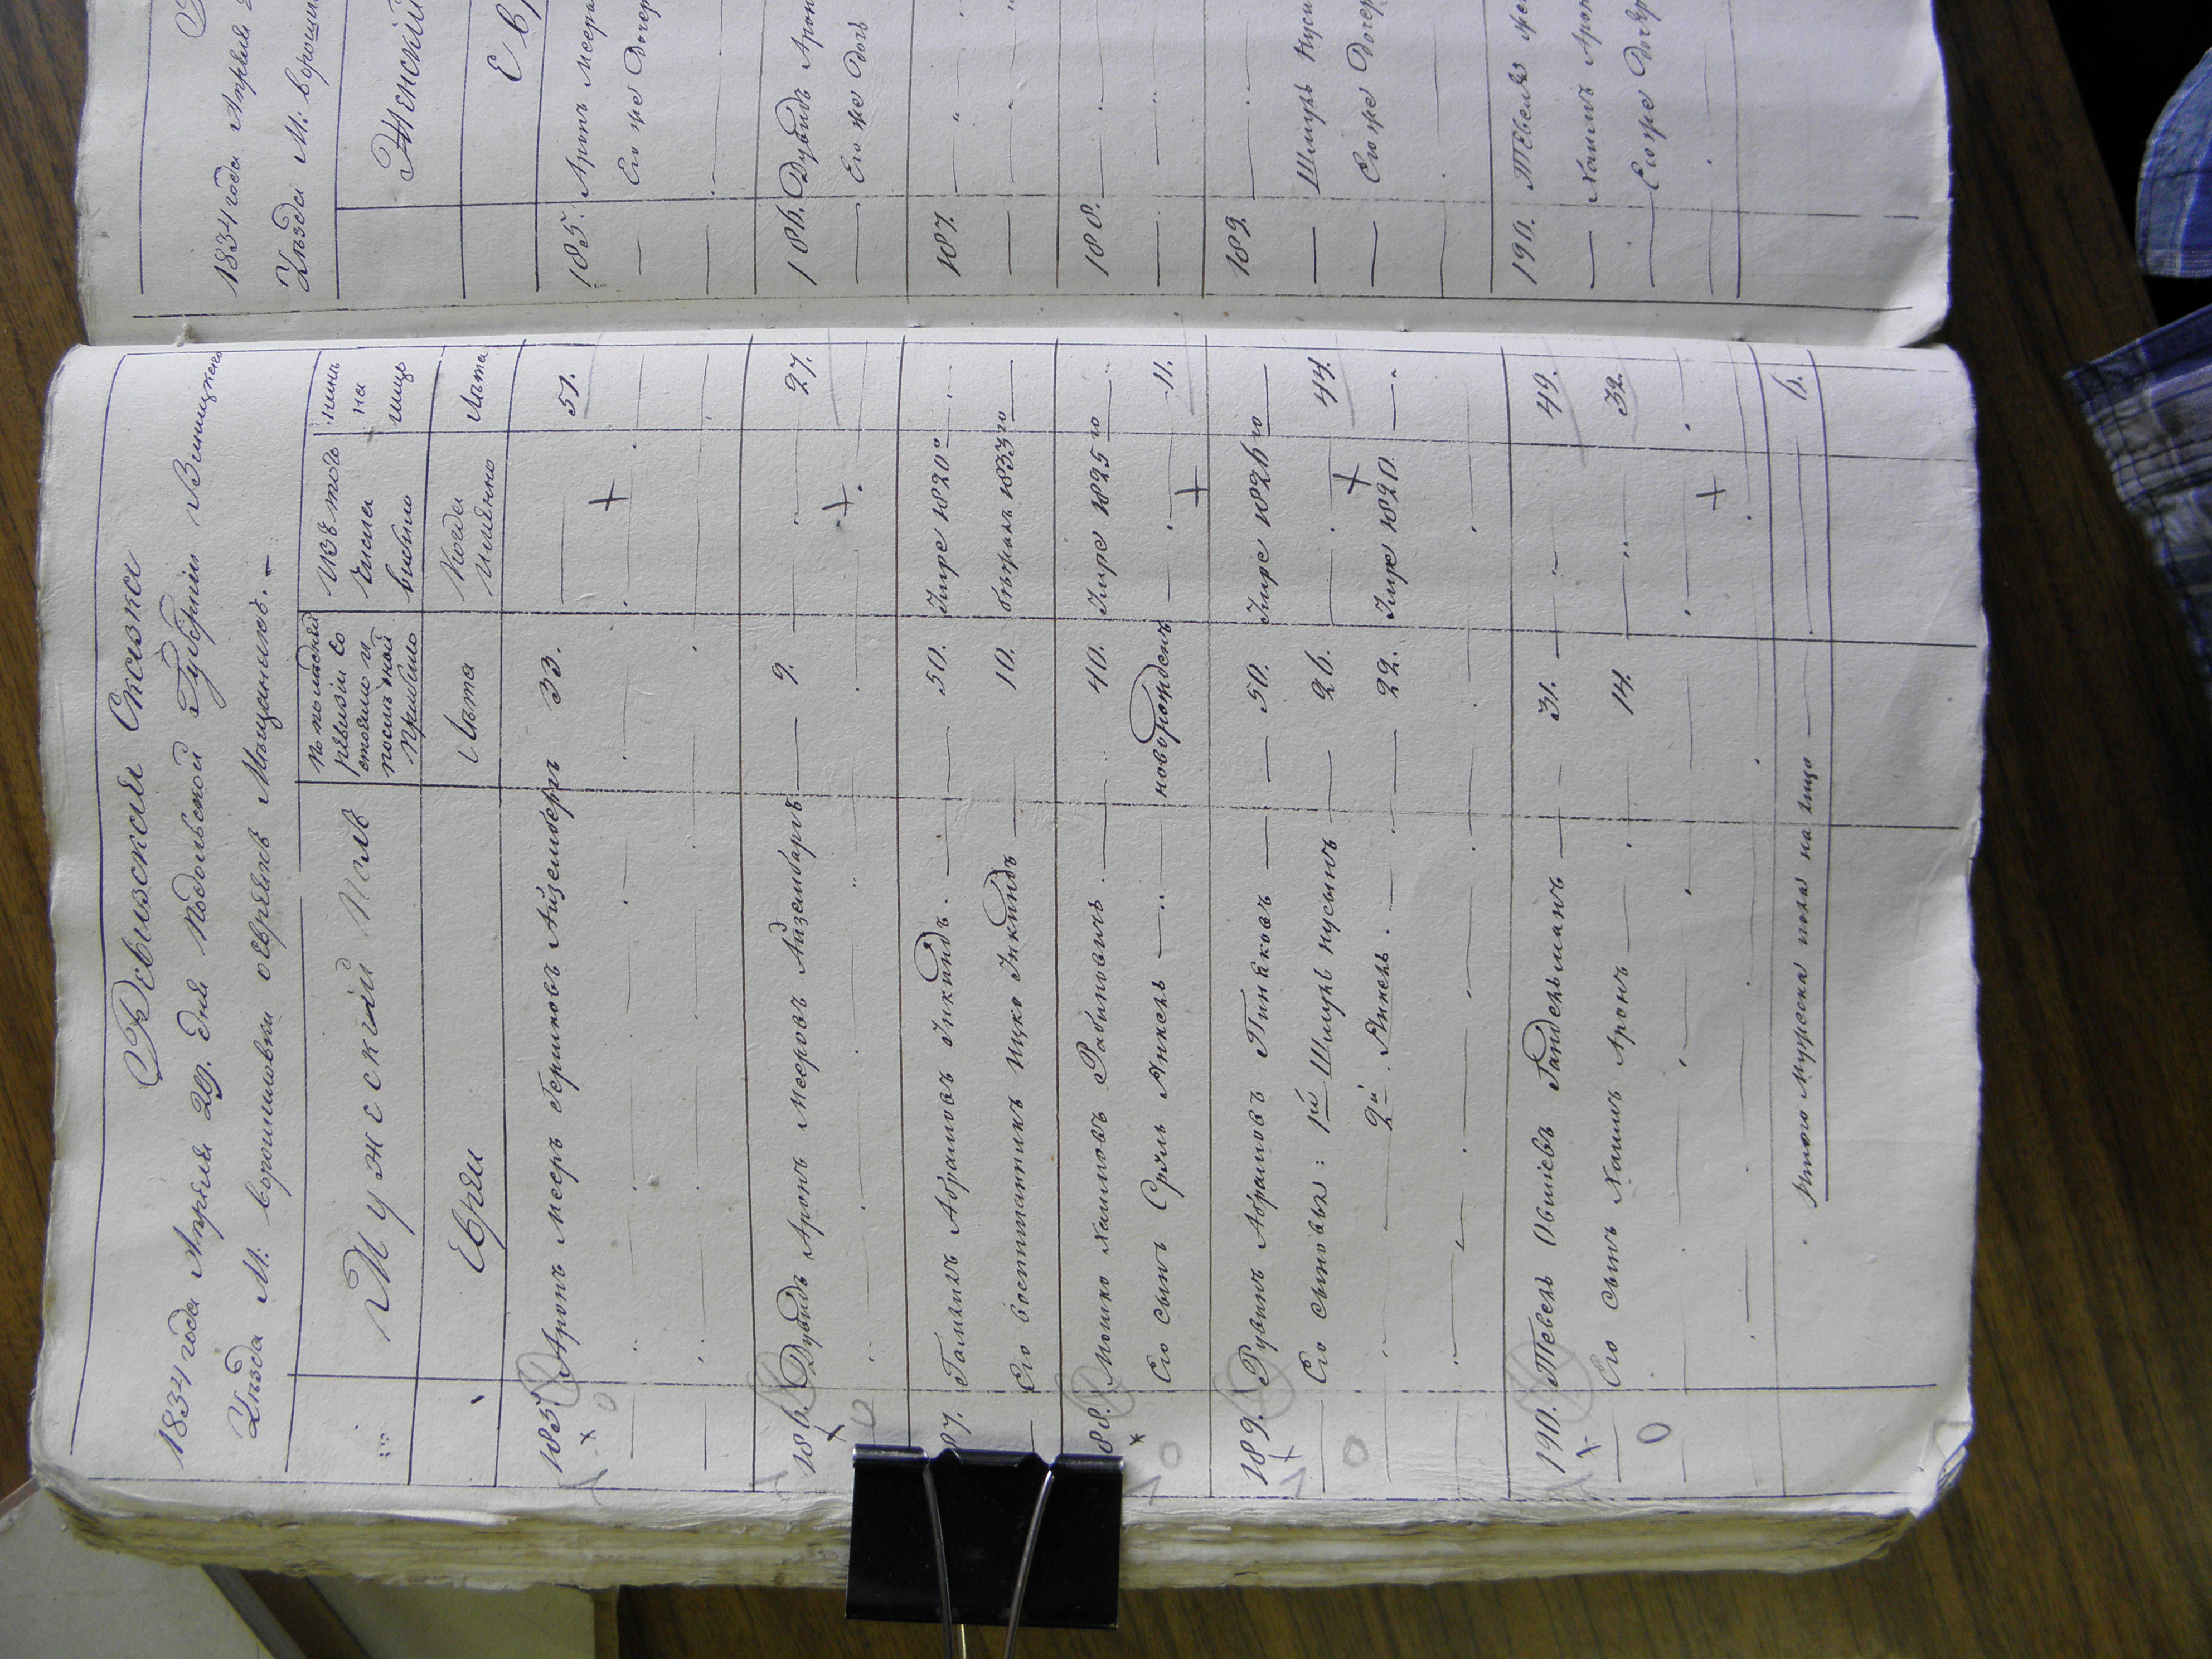 Ревизская Сказка
1834 года Апреля 29. дня Подольской Губернии Винницкаго
Уезда М: Ворошиловки о евреяхъ Мещанинхъ.
Мужескій Полъ
По последней ревизіи состояло и после оной прибыло
Изъ того числа выбыло
ныне на лицо
Евреи
Лета
Когда именно
Лета
185. Аронъ Мееръ Гершковъ Айземберг 33. 51.
186. Дувидъ Аронъ Мееровъ Айзембаргъ 9. 27.
87. Гамшлъ Абрамовъ Инкиндъ. 50. Умре 1820º
Его воспитанникъ Ицко Инкиндъ 10. бежалъ 1833го
88. Мошко Хаимовъ Рабиновичъ. 40. Умре 1825го
Его сынъ Сруль Анкель новорожденъ 11.
189. Рувинъ Абрамовъ Пинковъ 50. Умре 1826го
Его сыновья: 1й Шмуль Нусынъ 26. 44.
2й Анкель. 22. Умре 1820.
190. Тевель Овшіевъ Гандельманъ 31. 49.
Его сынъ Хаимъ Аронъ 14. 32.
Итого мужеска пола на лицо 6.
1834 года Апреля 2
Уезда М: Ворошил
Женскій
Ев
185. Аронъ Меера
Его же Дочер
186. Дувидъ Арон
Его же Дочь
187.
188.
189.
Шмуль Нуси
Его же Дочер
190. Тевеля же
Хаимъ Арон
Его же Дочер